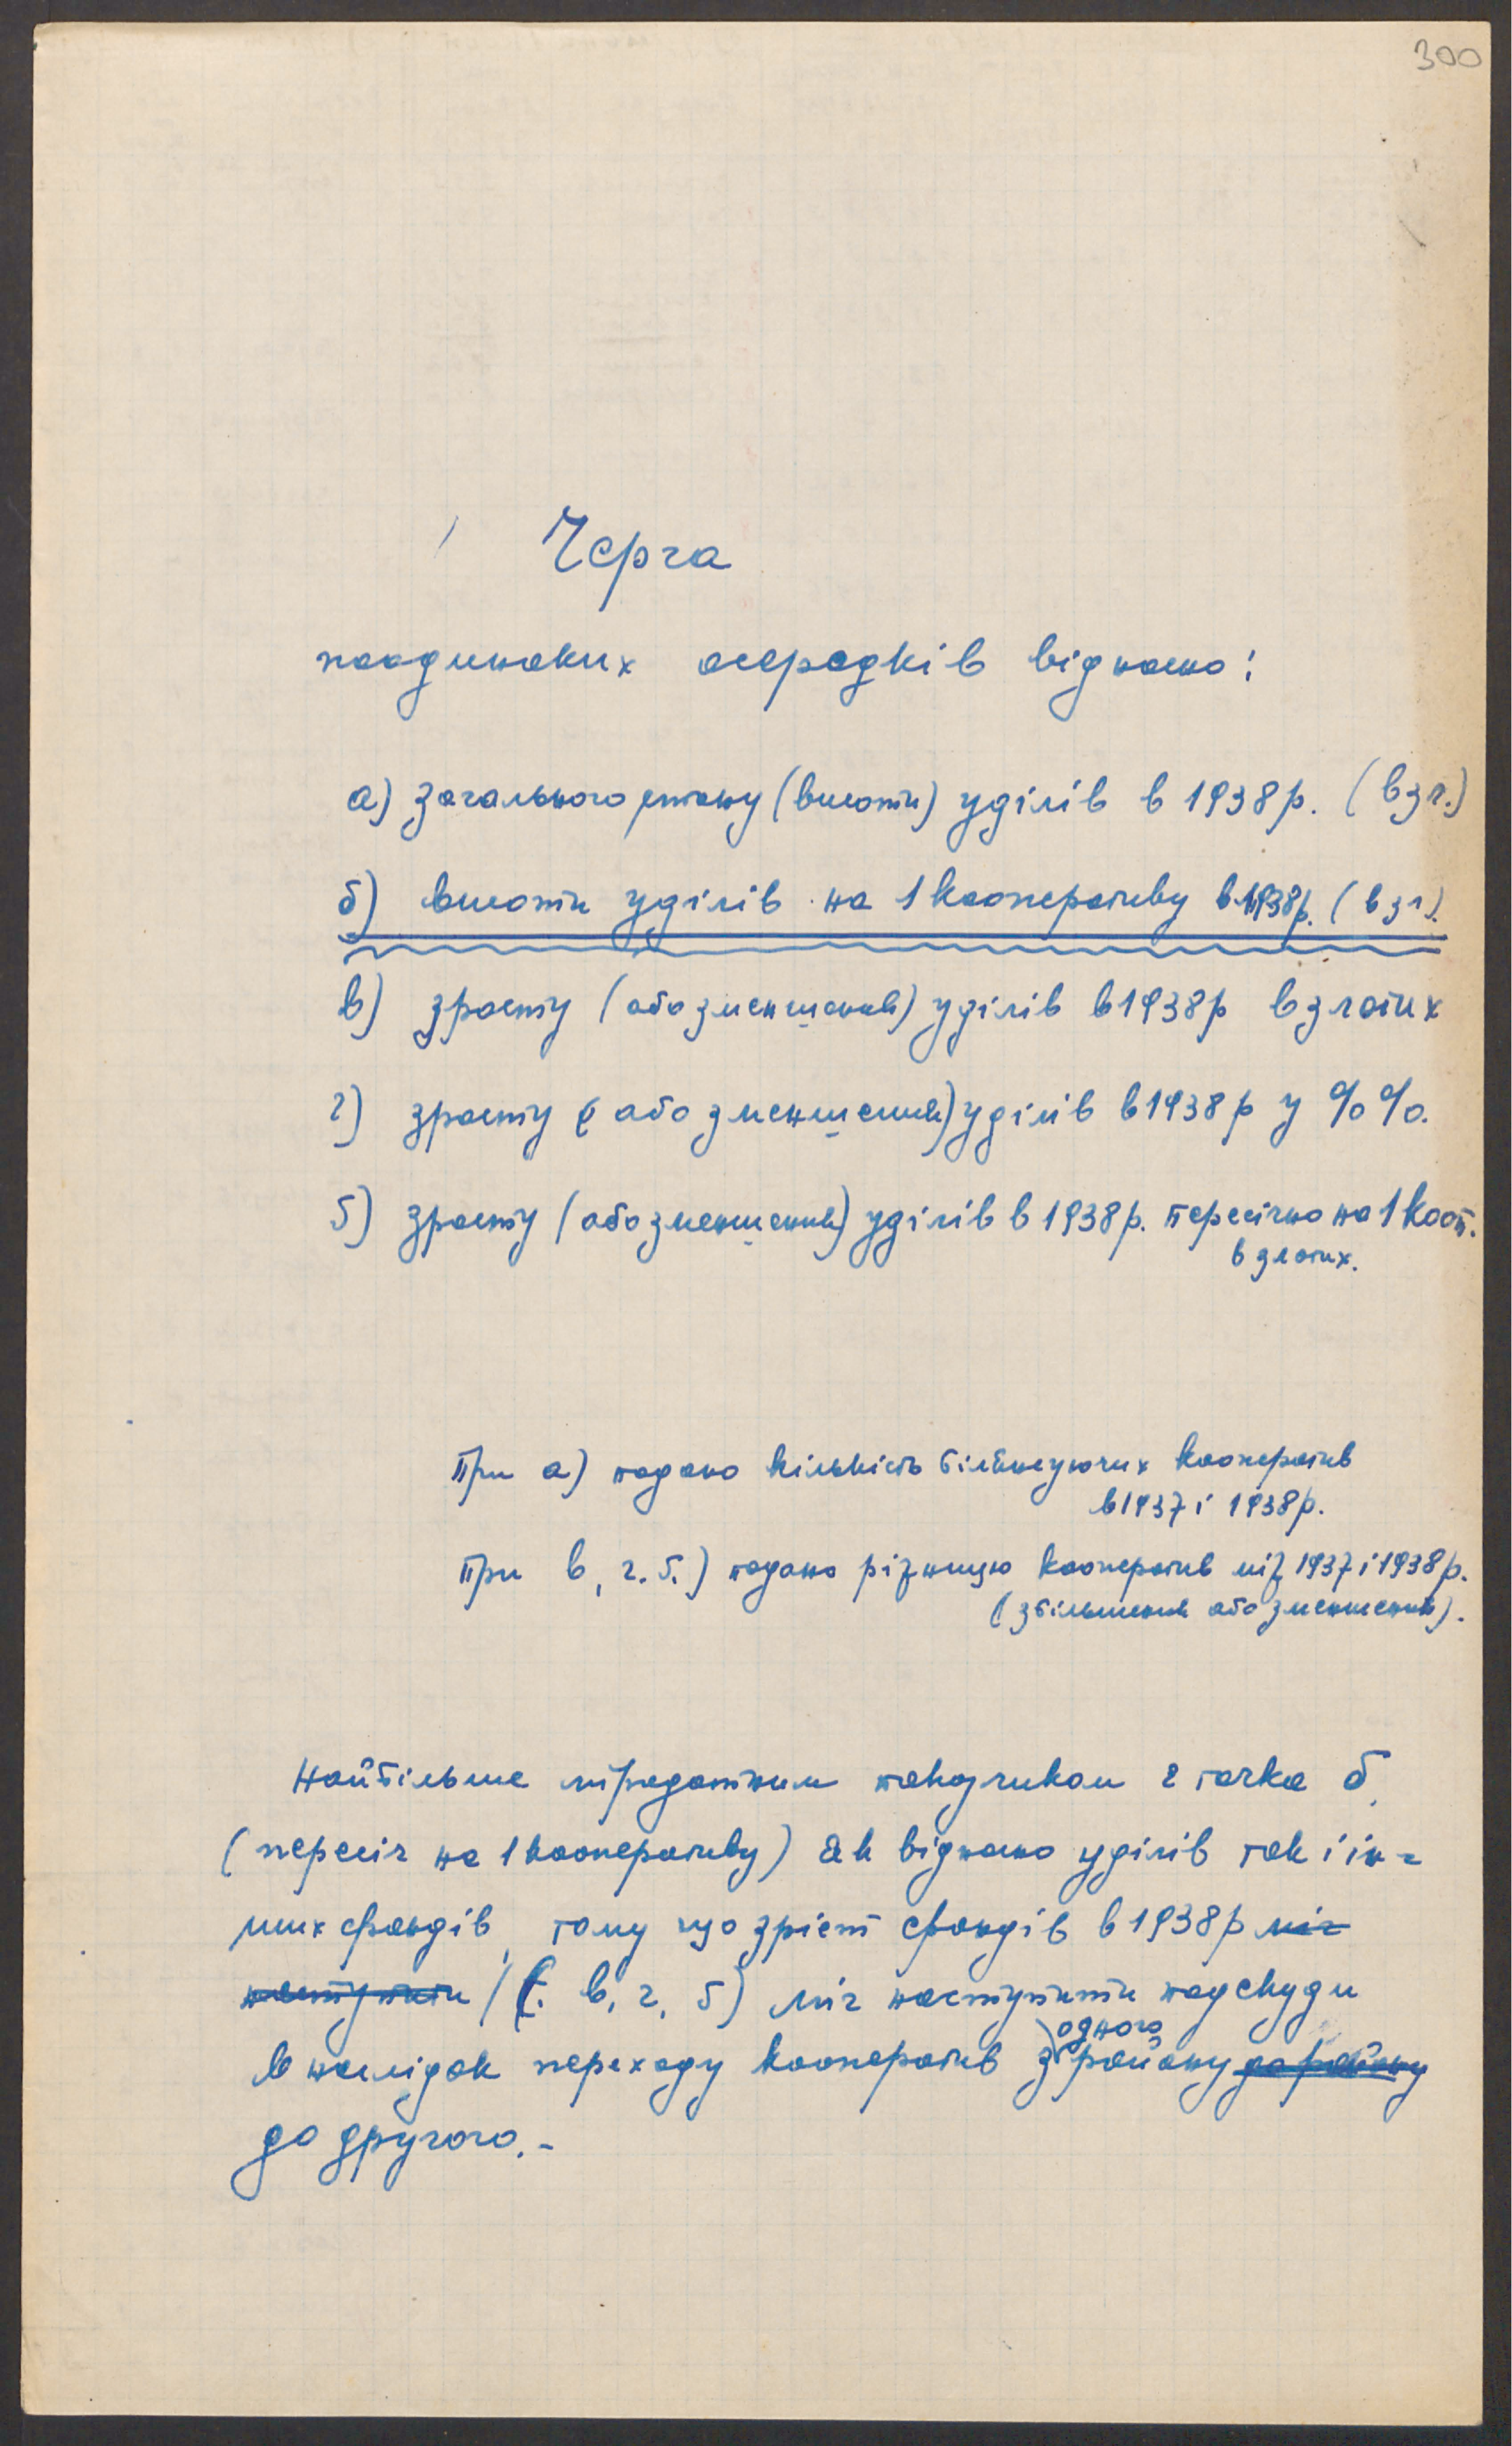 300
Черга
поодиноких осередків відносно:
а) загального стану (висоти) уділів в 1938 р. (в зл.)
б) висоти уділів на 1 кооперативу в 1938 р. (в зл).
в) зросту (або зменшення) уділів в 1938 р в злотих
г) зросту (або зменшення) уділів в 1938 р у %%.
ґ) зросту (або зменшення) уділів в 1938 р. пересічно на 1 кооп.
в злотих.
При а) подано кількість білянсуючих кооператив
в 1937 і 1938 р.
При в, г. ґ.) подано різницю кооператив між 1937 і 1938 р.
(збільшення або зменшення).
Найбільше міродатним показчиком є точка б.
(пересіч на 1 кооперативу) як відносно уділів так і ін-
ших фондів, тому що зріст фондів в 1938 р міг
наступити (в, г, ґ) міг наступити подекуди
в наслідок переходу кооператив з одного району до району
до другого.-